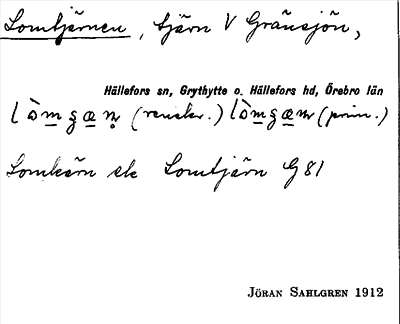 Lomtjärnen, tjärn V Gränsjön,
Hällefors sn, Grythytte o. Hällefors hd, Örebro län
(renskr.) (prim.)
Lomkärn ek Lomtjärn G 81
JÖRAN SAHLGREN 1912